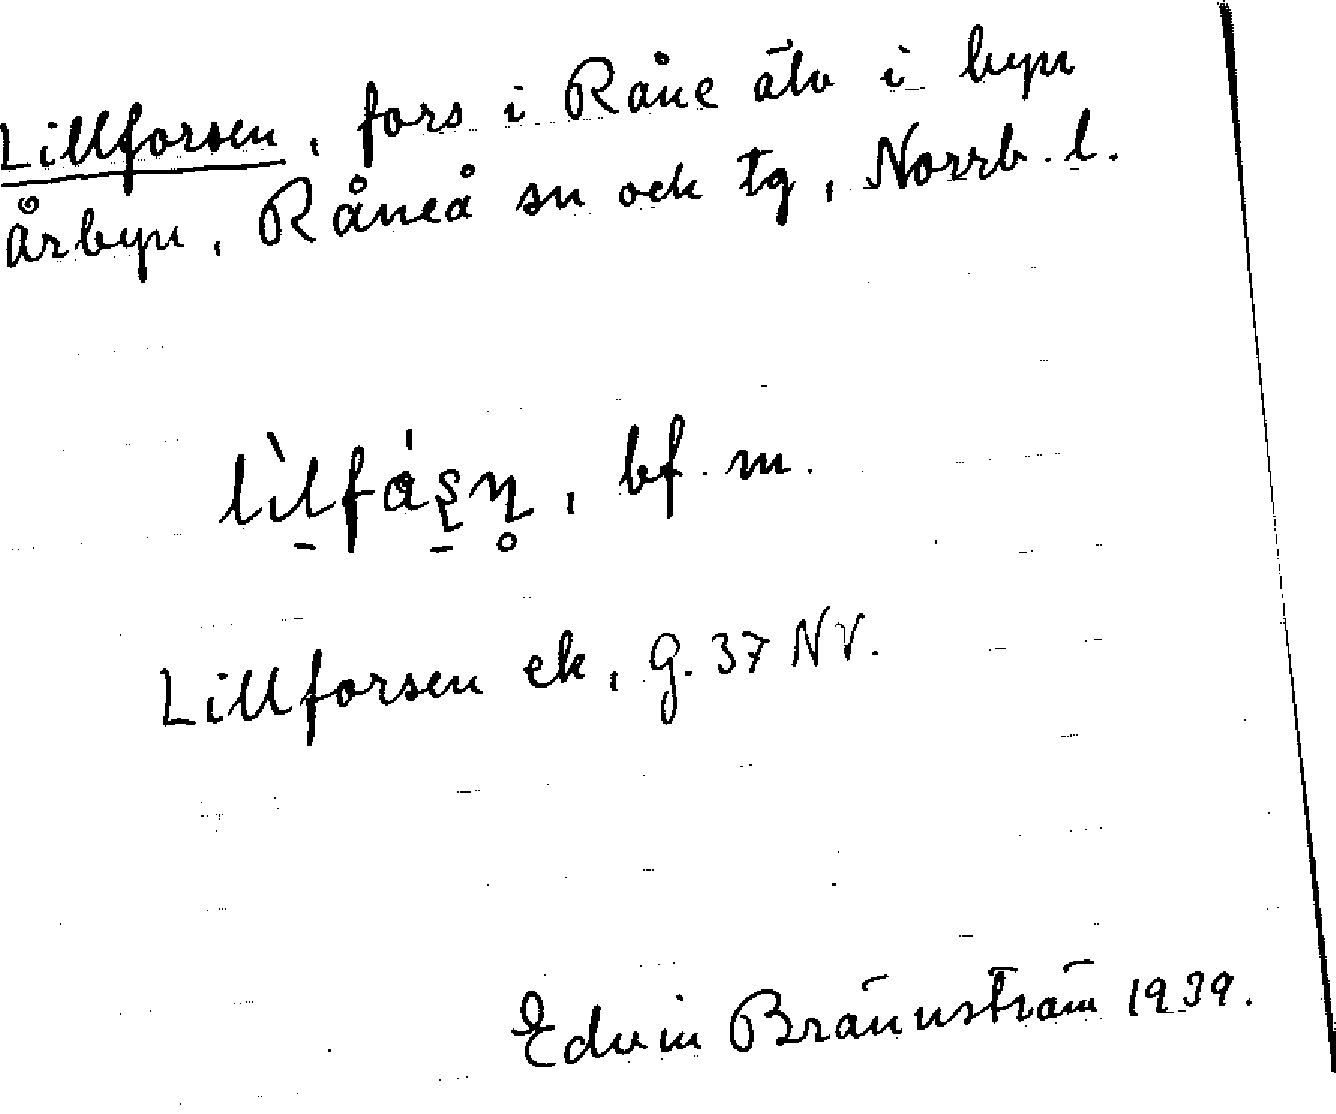 Lillforsen, fors i Råne älv i byn
Årbyn, Råneå sn ock tg, Norrb. l.
lìlfáʂṇ̊, bf. m.
Lillforsen ek, G. 37 NV.
Edvin Brännström 1939.